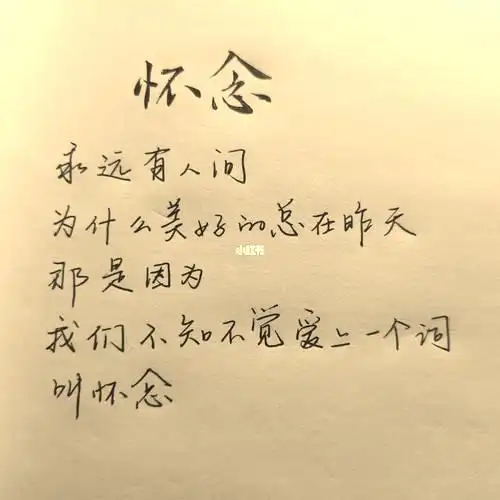 怀念
永远有人问
为什么美好的总在昨天
小红书
那是因为
我们不知不觉爱上一个词
叫怀念